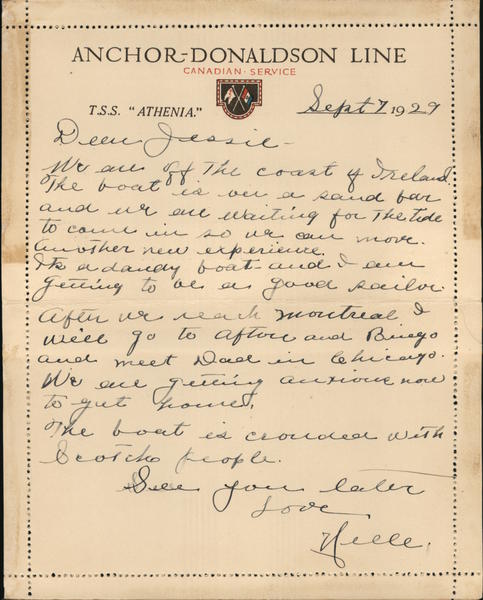 ANCHOR-DONALDSON LINE
CANADIAN·SERVICE
T.S.S. "ATHENIA."
Sept 7 1929
Dear Jessie -
We are off The coast of Ireland.
The boat is on a sand bar
and we are waiting for The tide
to come in so we can move.
Another new experience.
Its a dandy boat and I am
getting to be a good sailor.
After we reach Montreal I
will go to Afton and Bingo
and meet Dad in Chicago.
We are getting anxious now
to get home.
The boat is crowded with
Scotch people.
See you later
Love